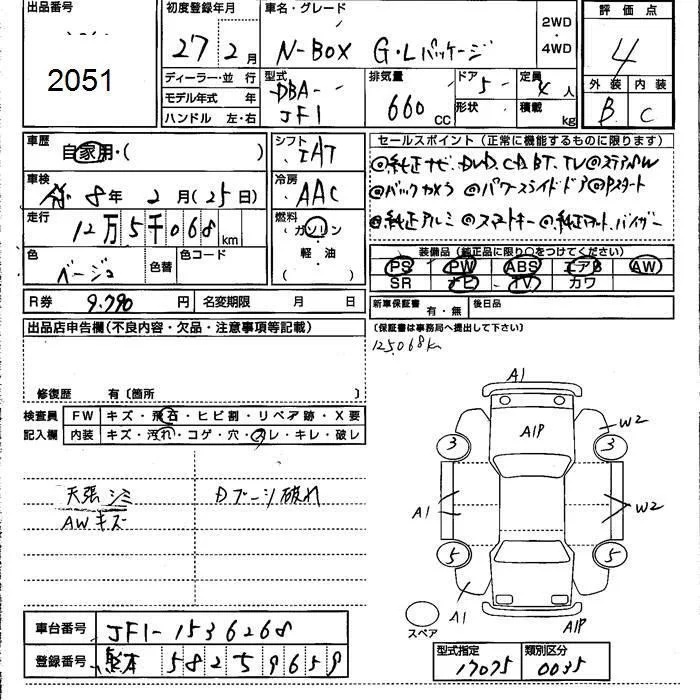 出品番号 初度登録年月 車名・グレード 評価点
2051 27 2月 N-BOX G・Lパッケージ 2WD・4WD 4
ディーラー・並行 型式 排気量 ドア 定員 外装 内装
モデル年式 年 DBA- 660 CC 5 4人 B C
ハンドル 左・右 JF1 形状 積載 kg
車歴 自家用・( ) シフト IAT セールスポイント (正常に機能するものに限ります)
◎純正ナビ.DVD.CD.BT.TV◎ステアSW
車検 令8年2月(25日) 冷房 AAC ◎バックカメラ ◎パワースライドドア◎Pスタート
走行 12万5千068km 燃料 ガソリン ◎純正アルミ ◎スマートキー ◎純正マット.バイザー
色 ベージュ 色替 色コード 軽油 装備品 (純正品に限り○をつけてください)
PS PW ABS エアB AW
SR ナビ TV カワ
R券 9.790円 名変期限 月 日 新車保証書 有・無 後日品
出品店申告欄(不良内容・欠品・注意事項等記載) (保証書は事務局へ提出して下さい)
125068km
修復歴 有〔箇所 〕
検査員 FW キズ・飛石・ヒビ割・リペア跡・X要
記入欄 内装 キズ・汚れ・コゲ・穴・スレ・キレ・破レ
A1
A1P
W2
3 3
天張シミ Dブーツ破れ
AWキズ
A1 W2
5 5
A1
スペア A1P
車台番号 JF1-1536268
登録番号 熊本 582 5 9659
型式指定 類別区分
17075 0035